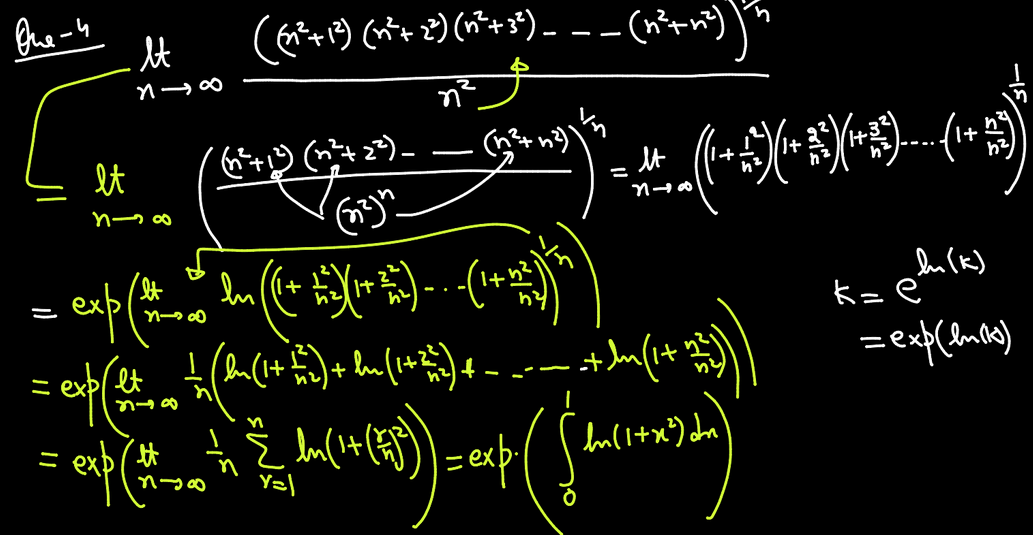 Que-4
lt n→∞ ((n²+1²)(n²+2²)(n²+3²)- - - - (n²+n²))^(1/n) / n²
= lt n→∞ ((n²+1²)(n²+2²)- - — (n²+n²) / (n²)ⁿ)^(1/n) = lt n→∞ ((1+1²/n²)(1+2²/n²)(1+3²/n²).....(1+n²/n²))^(1/n)
= exp(lt n→∞ ln((1+1²/n²)(1+2²/n²)- - -(1+n²/n²))^(1/n))
k = e^(ln(k))
= exp(lt n→∞ 1/n (ln(1+1²/n²)+ln(1+2²/n²)+- - - — -+ln(1+n²/n²)))
= exp(ln(k))
= exp(lt n→∞ 1/n ∑_(r=1)^n ln(1+(r/n)²)) = exp.(∫_0^1 ln(1+x²)dx)